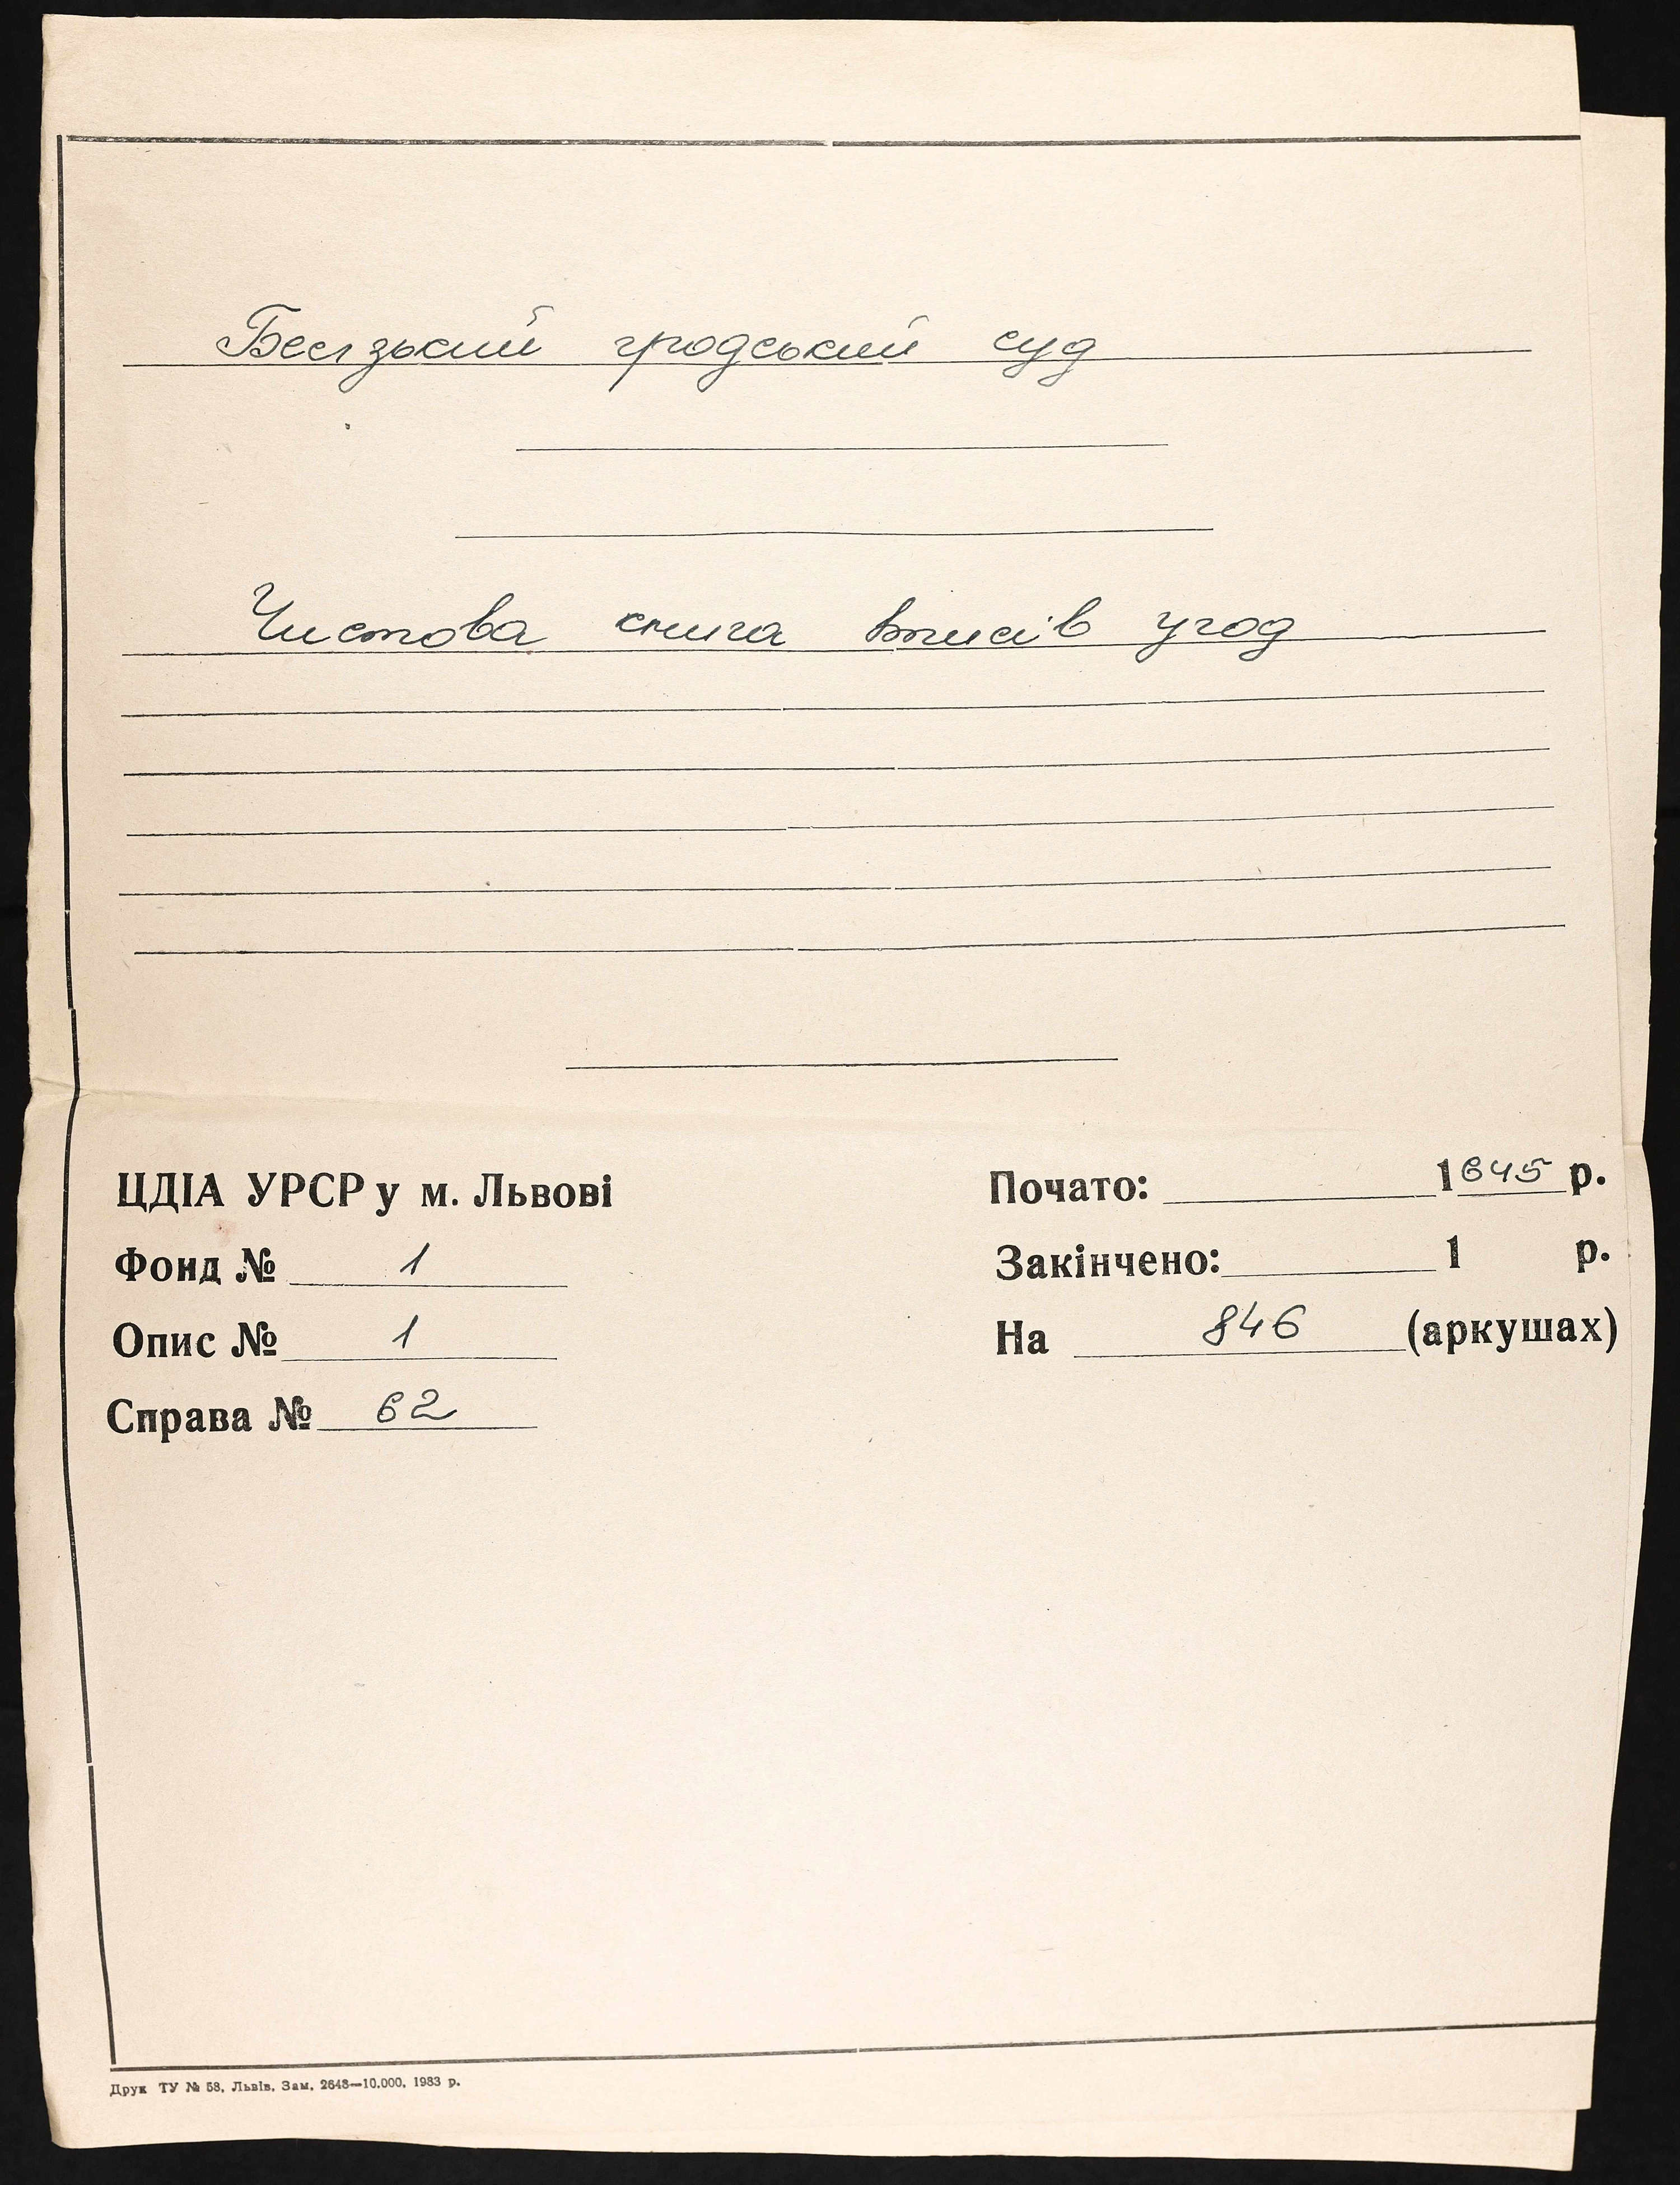 Белзький гродський суд
Чистова книга вписів угод
ЦДІА УРСР у м. Львові
Почато: 1645 р.
Фонд № 1
Закінчено: 1 р.
Опис № 1
На 846 (аркушах)
Справа № 62
Друк ТУ № 58. Львів. Зам. 2648—10.000. 1983 р.